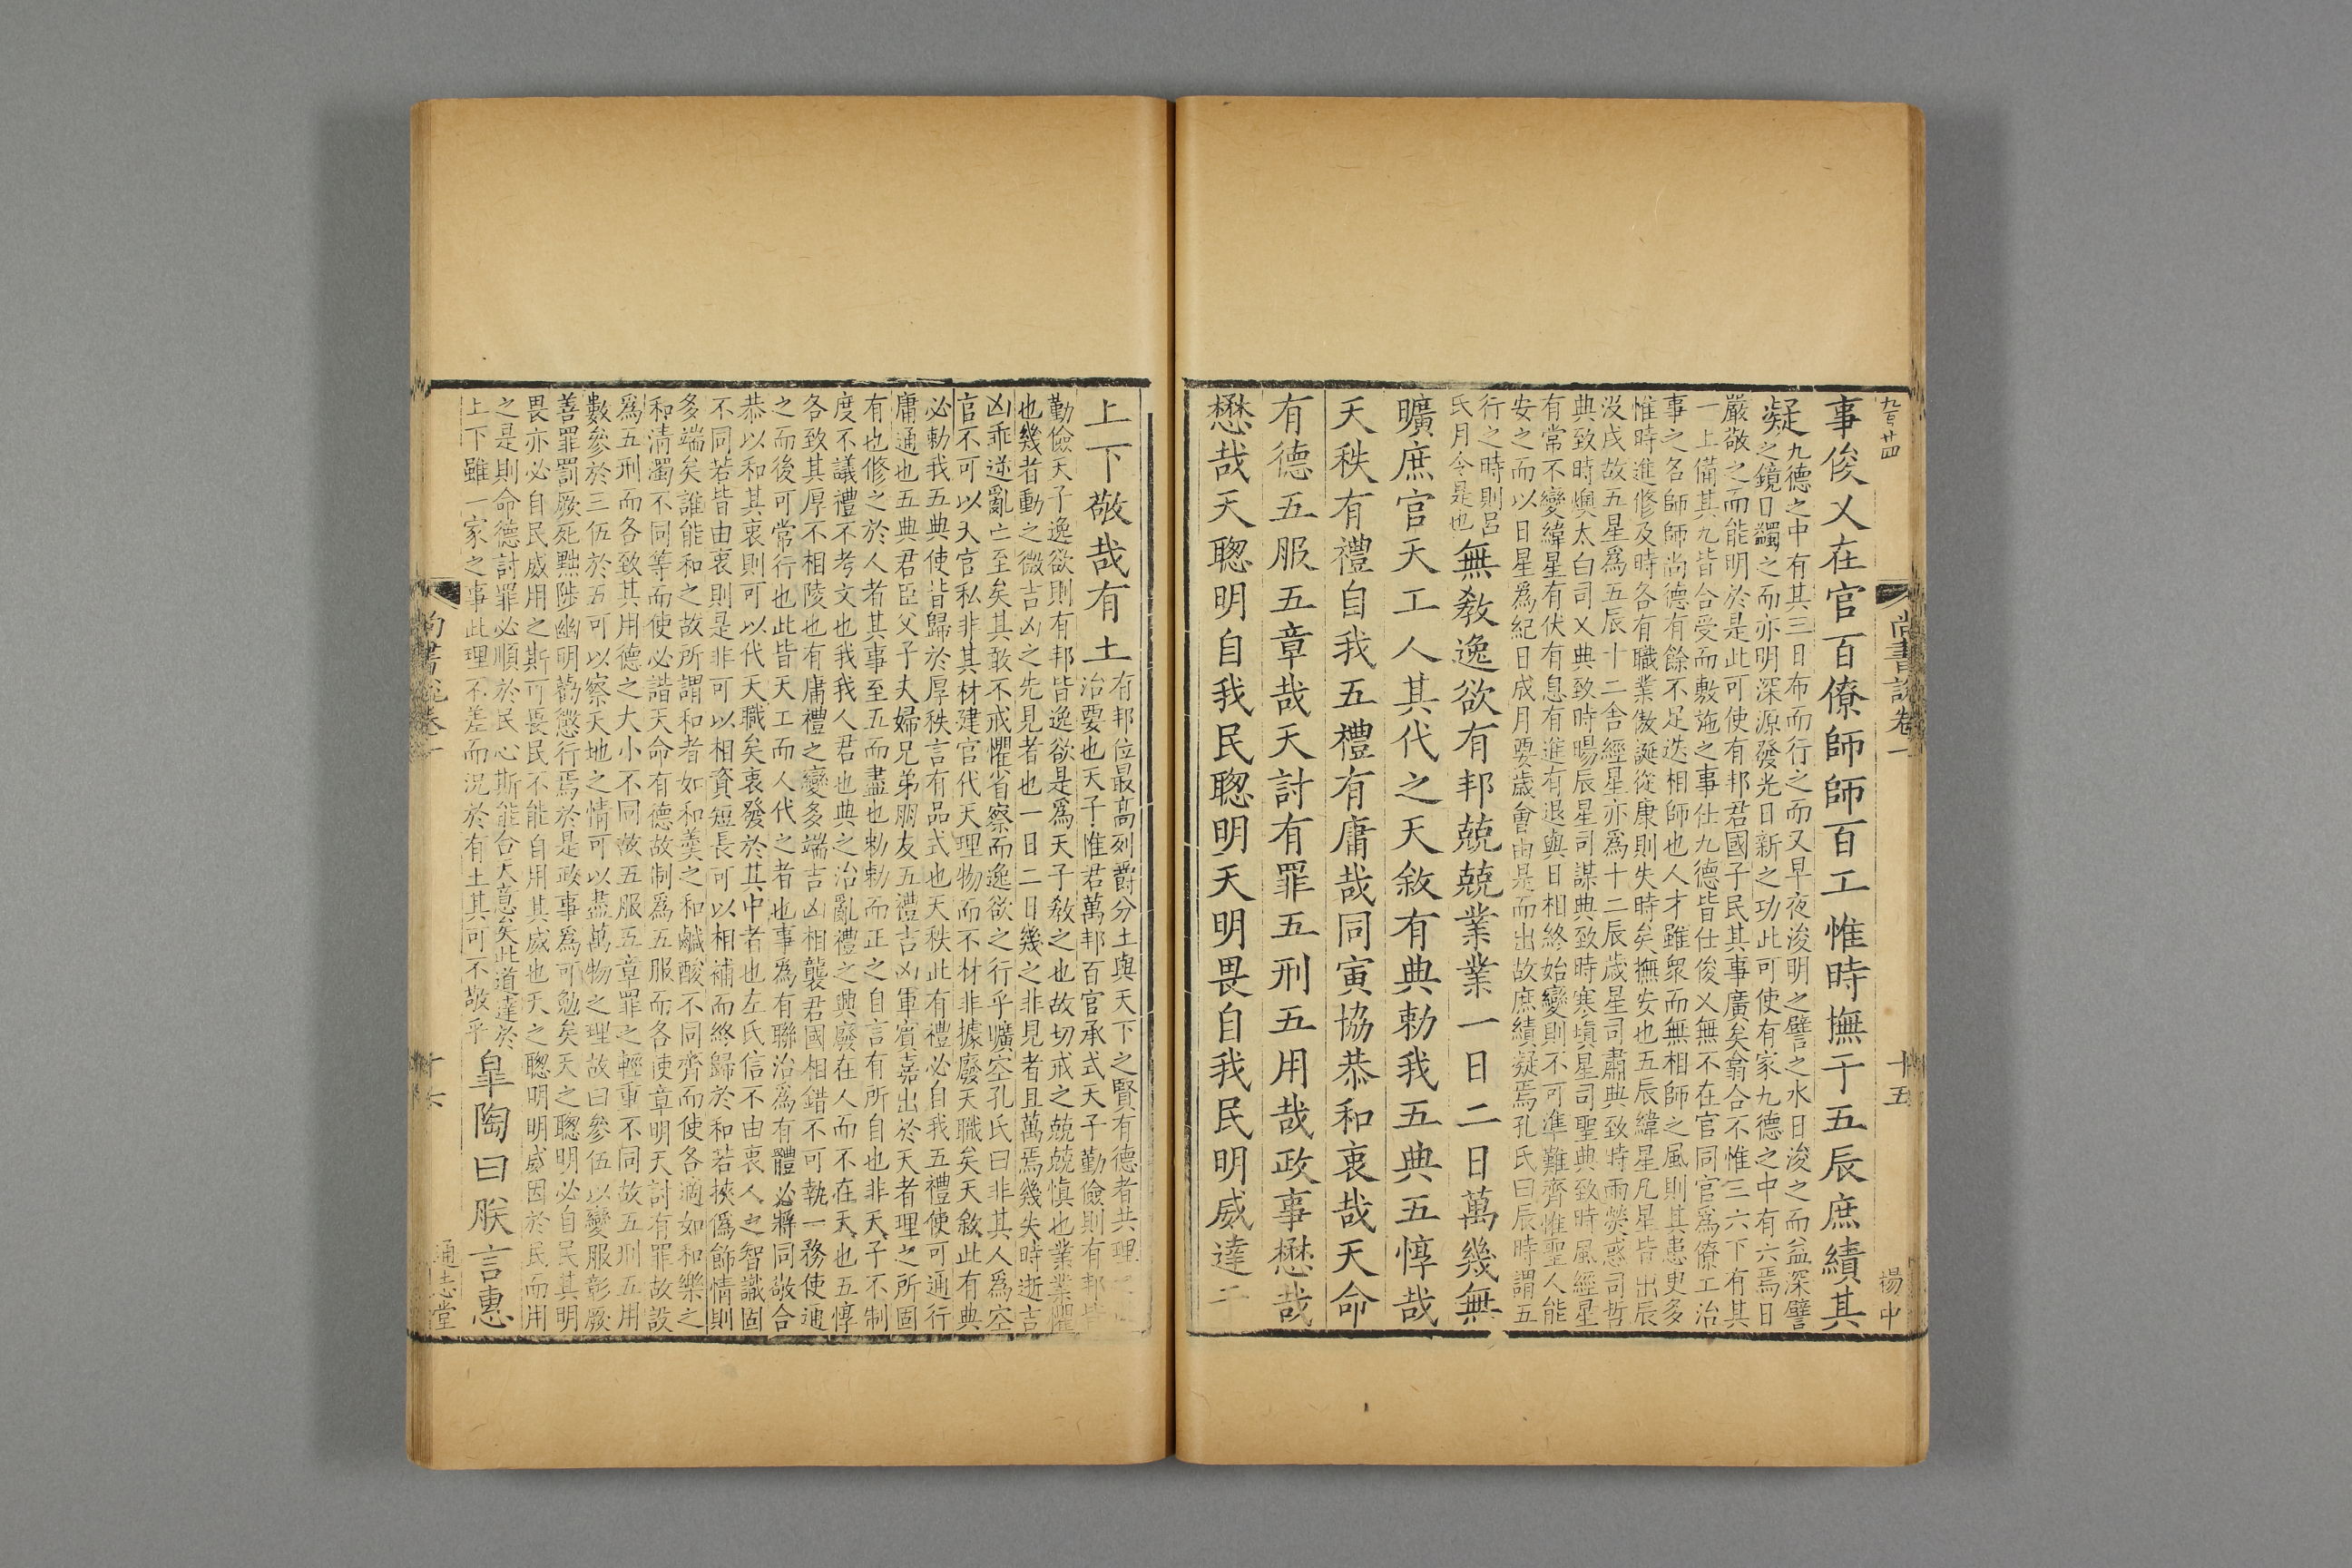 九百廿四
尚書說卷一
十五
楊中
事俊乂在官百僚師師百工惟時撫于五辰庶績其
凝九德之中有其三日布而行之而又早夜浚明之譬之水日浚之而益深譬
之鏡日蠲之而亦明深源發光日新之功此可使有家九德之中有六焉日
嚴敬之而能明於是此可使有邦君國子民其事廣矣翕合不惟三六下有其
一上備其九皆合受而敷施之事仕九德皆仕俊乂無不在官同官爲僚工治
事之名師師尚德有餘不足迭相師也人才雖衆而無相師之風則其患史多
惟時進修及時各有職業傲誕從康則失時矣撫安也五辰緯星凡星皆出辰
没戌故五星爲五辰十二舍經星亦爲十二辰歲星司肅典致時雨熒惑司哲
典致時燠太白司乂典致時暘辰星司謀典致時寒塡星司聖典致時風經星
有常不變緯星有伏有息有進有退與日相終始變則不可準難齊惟聖人能
安之而以日星爲紀日成月要歲會由是而出故庶績凝焉孔氏曰辰時謂五
行之時則呂
氏月令是也無敎逸欲有邦兢兢業業一日二日萬幾無
曠庶官天工人其代之天敘有典勅我五典五惇哉
天秩有禮自我五禮有庸哉同寅協恭和衷哉天命
有德五服五章哉天討有罪五刑五用哉政事懋哉
懋哉天聰明自我民聰明天明畏自我民明威達于
上下敬哉有土有邦位最高列爵分土與天下之賢有德者共理
治要也天子惟君萬邦百官承式天子勤儉則有邦皆
勤儉天子逸欲則有邦皆逸欲是爲天子敎之也故切戒之兢兢愼也業業懼
也幾者動之微吉凶之先見者也一日二日幾之非見者且萬焉幾失時逝吉
凶乖逆亂亡至矣其敢不戒懼省察而逸欲之行乎曠空孔氏曰非其人爲空
官不可以天官私非其材建官代天理物而不材非據廢天職矣天敘此有典
必勅我五典使皆歸於厚秩言有品式也天秩此有禮必自我五禮使可通行
庸通也五典君臣父子夫婦兄弟朋友五禮吉凶軍賓嘉出於天者理之所固
有也修之於人者其事至五而盡也勅勅而正之自言有所自也非天子不制
度不議禮不考文也我我人君也典之治亂禮之興廢在人而不在天也五惇
各致其厚不相陵也有庸禮之變多端吉凶相襲君國相錯不可執一務使通
之而後可常行也此皆天工而人代之者也事爲有聯治爲有體必將同敬合
恭以和其衷則可以代天職矣衷發於其中者也左氏信不由衷人之智識固
不同若皆由衷則是非可以相資短長可以相補而終歸於和若挾僞飾情則
多端矣誰能和之故所謂和者如和羹之和鹹酸不同齊而使各適如和樂之
和淸濁不同等而使必諧天命有德故制爲五服而各使章明天討有罪故設
爲五刑而各致其用德之大小不同故五服五章罪之輕重不同故五刑五用
數參於三伍於五可以察天地之情可以盡萬物之理故曰參伍以變服彰厥
善罪罰厥死黜陟幽明勸懲行焉於是政事爲可勉矣天之聰明必自民其明
畏亦必自民威用之斯可畏民不能自用其威也天之聰明明威因於民而用
之是則命德討罪必順於民心斯能合天意矣此道達於
上下雖一家之事此理不差而況於有土其可不敬乎皐陶曰朕言惠
尚書說卷一
十六
通志堂